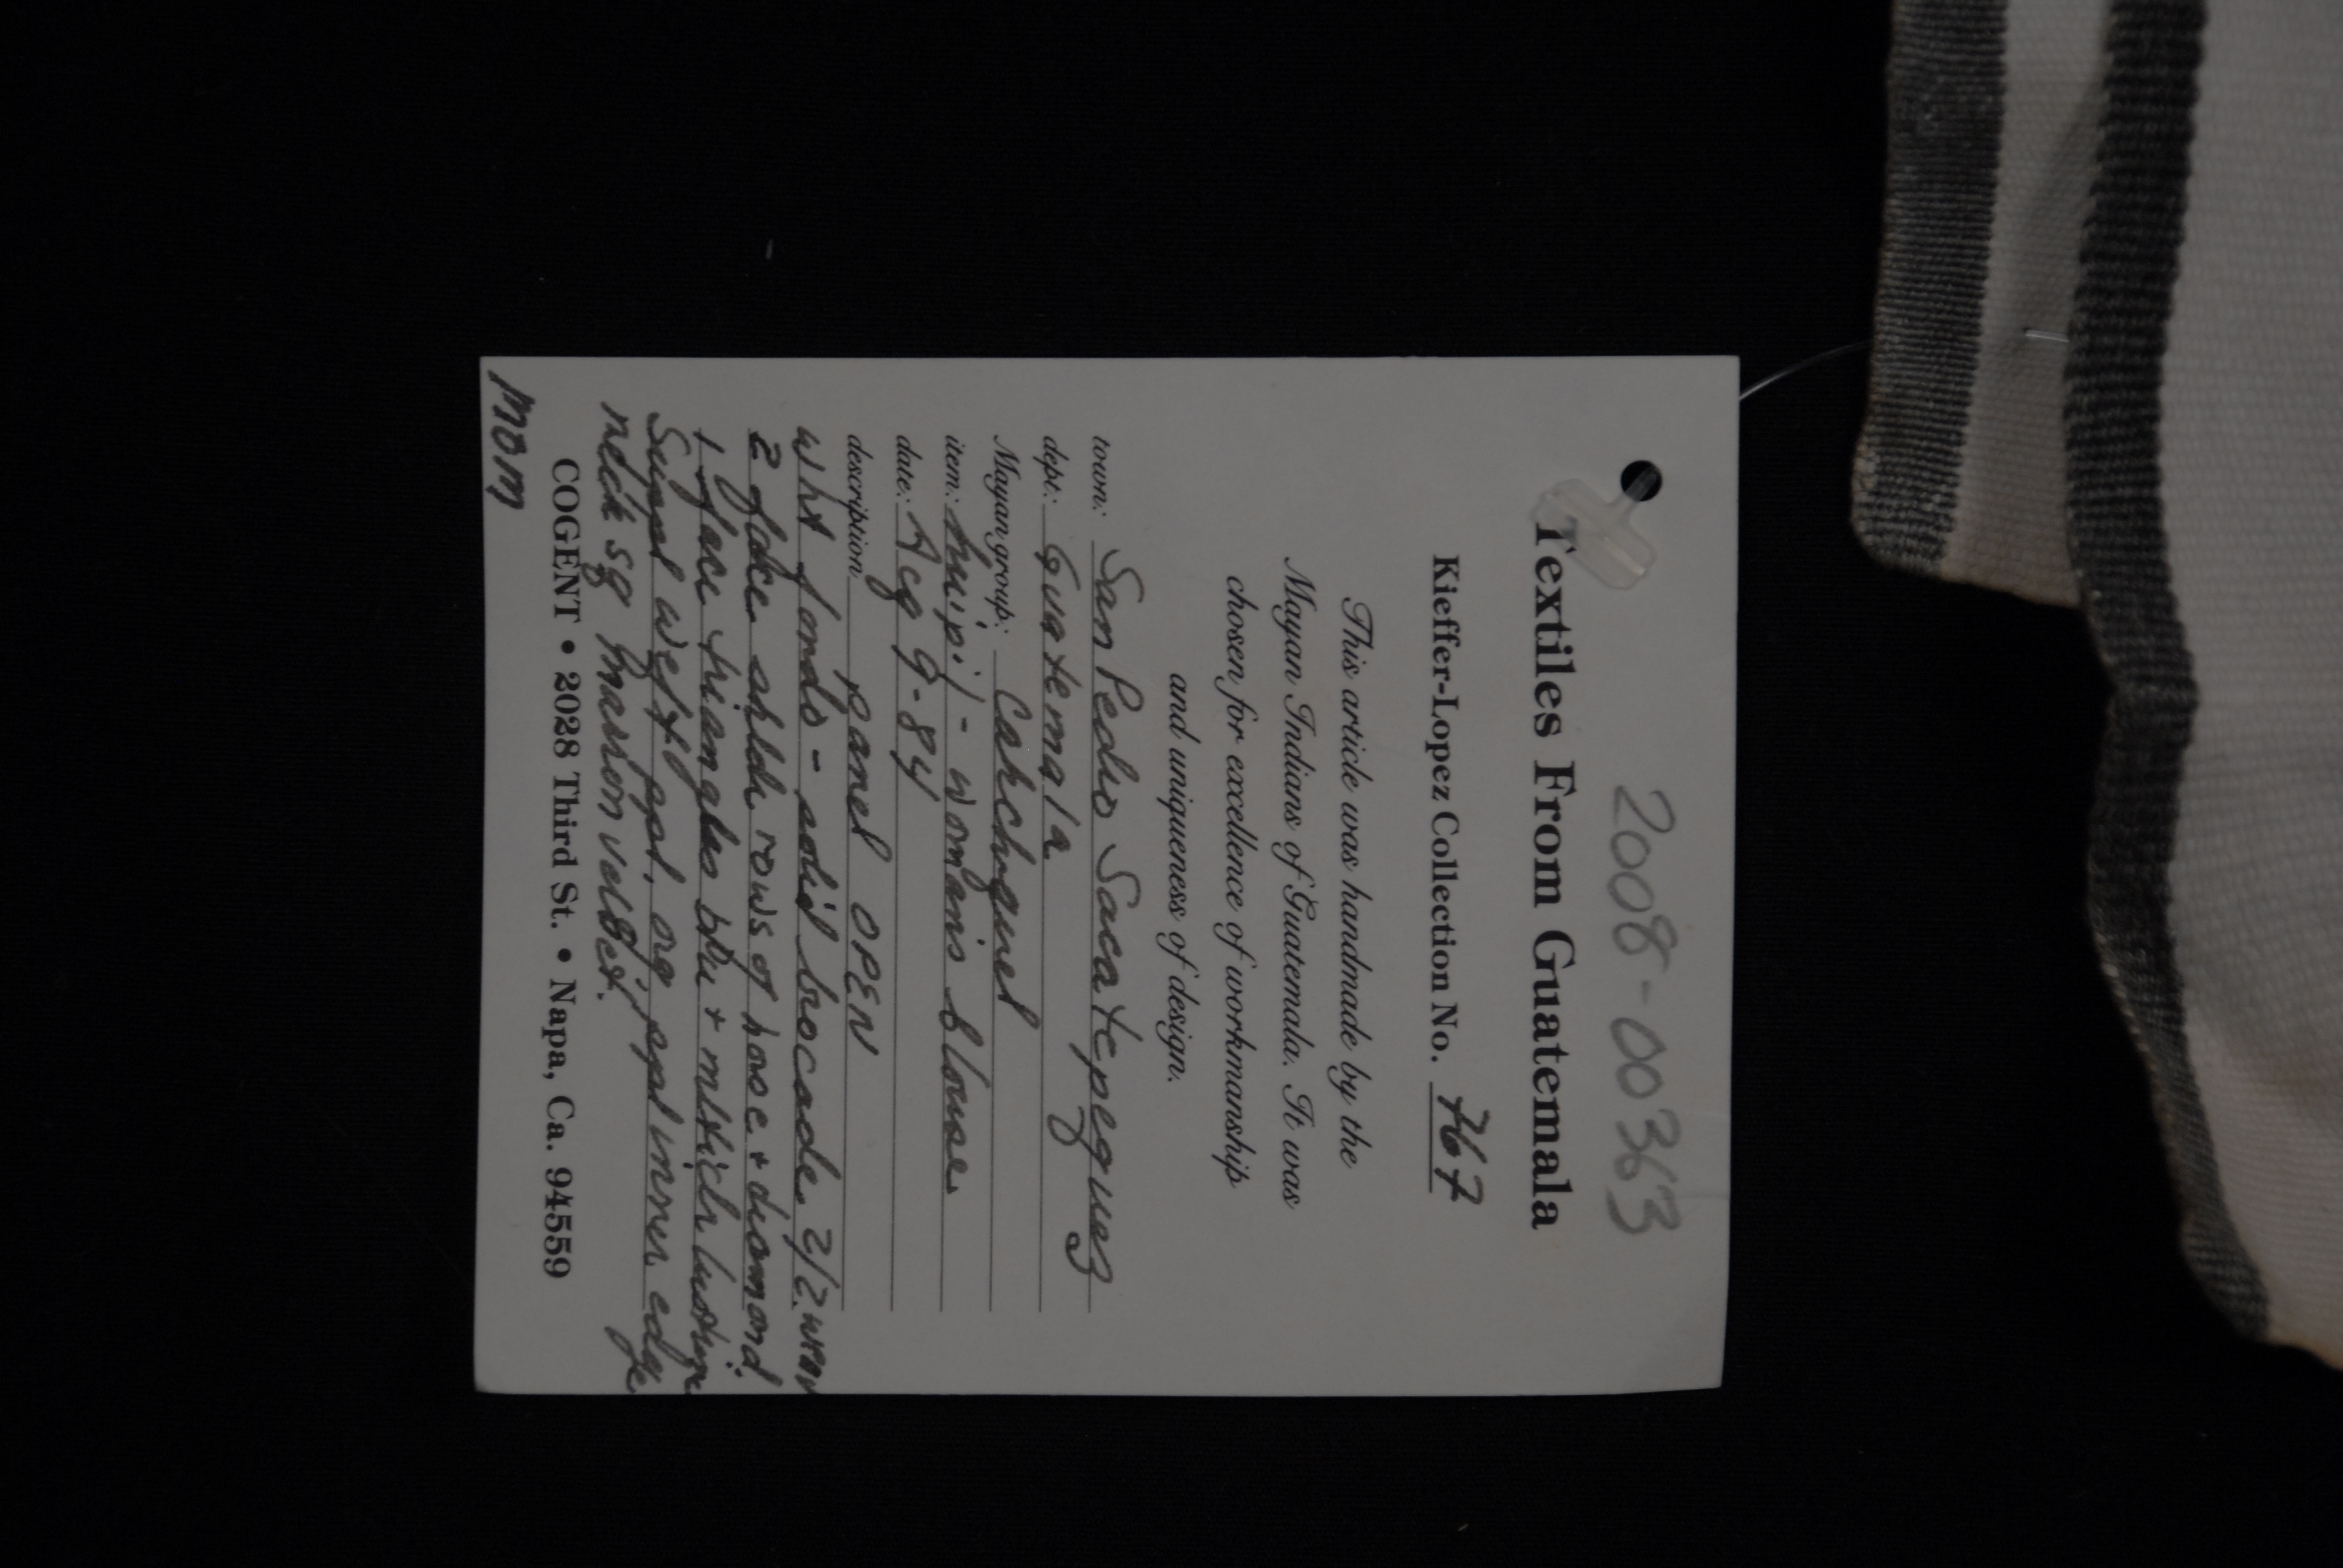 2008-00363
Textiles From Guatemala
Kieffer-Lopez Collection No. 767
This article was handmade by the
Mayan Indians of Guatemala. It was
chosen for excellence of workmanship
and uniqueness of design.
town: San Pedro Sacatepequez
dept: Guatemala
Mayan group: Cakchiquel
item: huipil - woman's blouse
date: Acq 9-84
description Panel OPEN
wht fondo - solid brocade 2/2
2 face shldr rows of horse + diamond
1 face triangles blu + mlticlr
Suppl weft ppl, org, ppl inner edge
neck sq maroon velvet.
COGENT • 2028 Third St. • Napa, Ca. 94559
mom